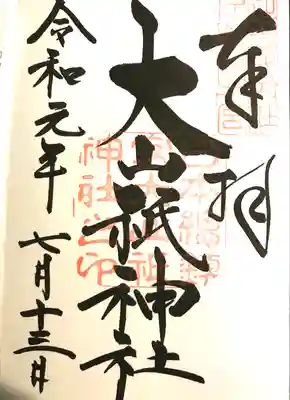 奉拝
大山祇神社
令和元年 七月十三日